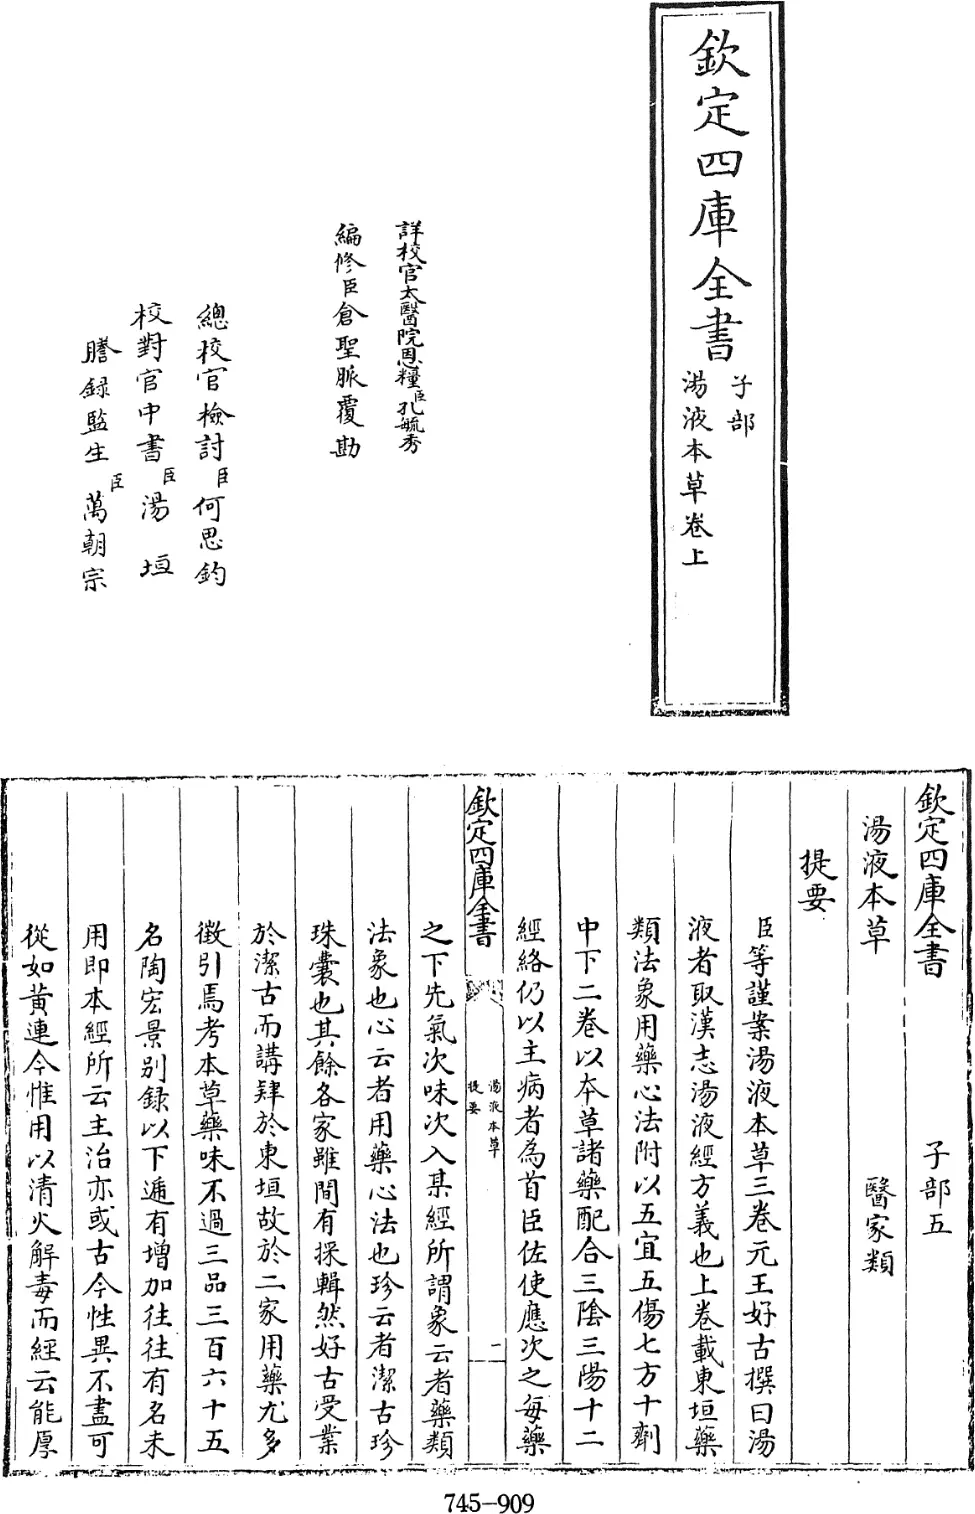 欽定四庫全書
子部
湯液本草卷上
詳校官太醫院恩糧臣孔毓秀
編修臣倉聖脈覆勘
總校官檢討臣何思鈞
校對官中書臣湯垣
謄錄監生臣萬朝宗
欽定四庫全書 子部五
湯液本草 醫家類
提要
臣等謹案湯液本草三卷元王好古撰曰湯
液者取漢志湯液經方義也上卷載東垣藥
類法象用藥心法附以五宜五傷七方十劑
中下二卷以本草諸藥配合三陰三陽十二
經絡仍以主病者為首臣佐使應次之每藥
欽定四庫全書
湯液本草
提要
二
之下先氣次味次入某經所謂象云者藥類
法象也心云者用藥心法也珍云者潔古珍
珠囊也其餘各家雖間有採輯然好古受業
於潔古而講肄於東垣故於二家用藥尤多
徵引焉考本草藥味不過三品三百六十五
名陶宏景別錄以下遞有增加往往有名未
用即本經所云主治亦或古今性異不盡可
從如黃連今惟用以清火解毒而經云能厚
745-909